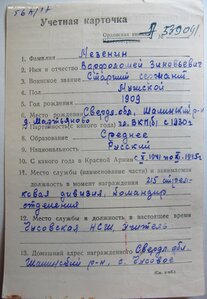 Учетная карточка
1. Фамилия Мезенин
2. Имя и отчество Варфоломей Зиновьевич
3. Воинское звание Старший сержант
4. Пол Мужской
5. Год рождения 1909
6. Место рождения Свердл. обл, Шалинский р-н
д. Мартьяново
7. Партийность (с какого года) чл. ВКП(б) с 1930 г
8. Образование Среднее
9. Национальность Русский
10. С какого года в Красной Армии с 1941 по 1945 г.
11. Место службы (наименование части) и занимаемая
должность в момент награждения 215 стрел-
ковая дивизия, командир
отделения
12. Место службы и должность в настоящее время
Чусовская НСШ, учитель
13. Домашний адрес награжденного Свердл. обл.
Шалинский р-н, с. Чусовое
(См. н/об.)